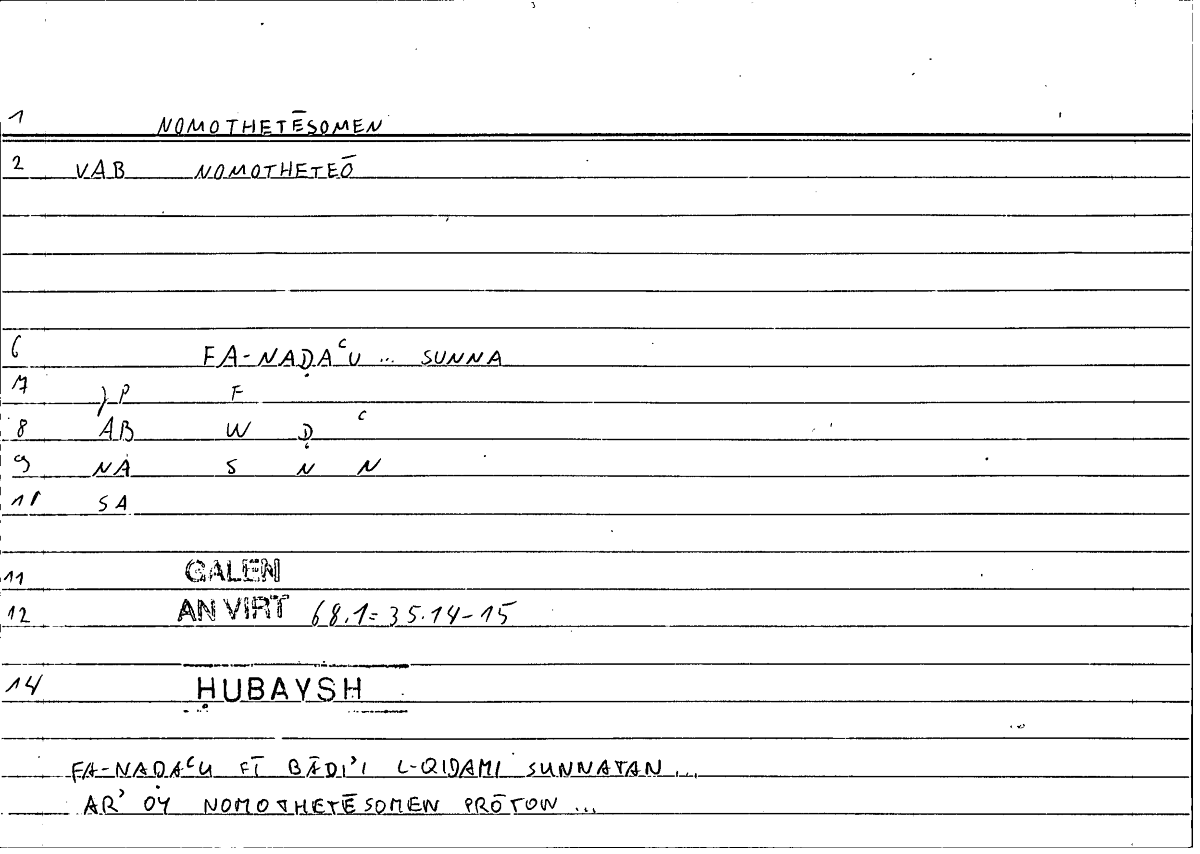 1 NOMOTHETĒSOMEN
2 VAB NOMOTHETEŌ
6 FA-NAḌAʿU ... SUNNA
7 )P F
8 AB W Ḍ ʿ
9 NA S N N
11 SA
11 GALEN
12 AN VIRT 68.1=35.14-15
14 ḤUBAYSH
FA-NAḌAʿU FĪ BĀDIʾI L-QIDAMI SUNNATAN ...
AR' OY NOMOTHETĒSOMEN PRŌTON ...